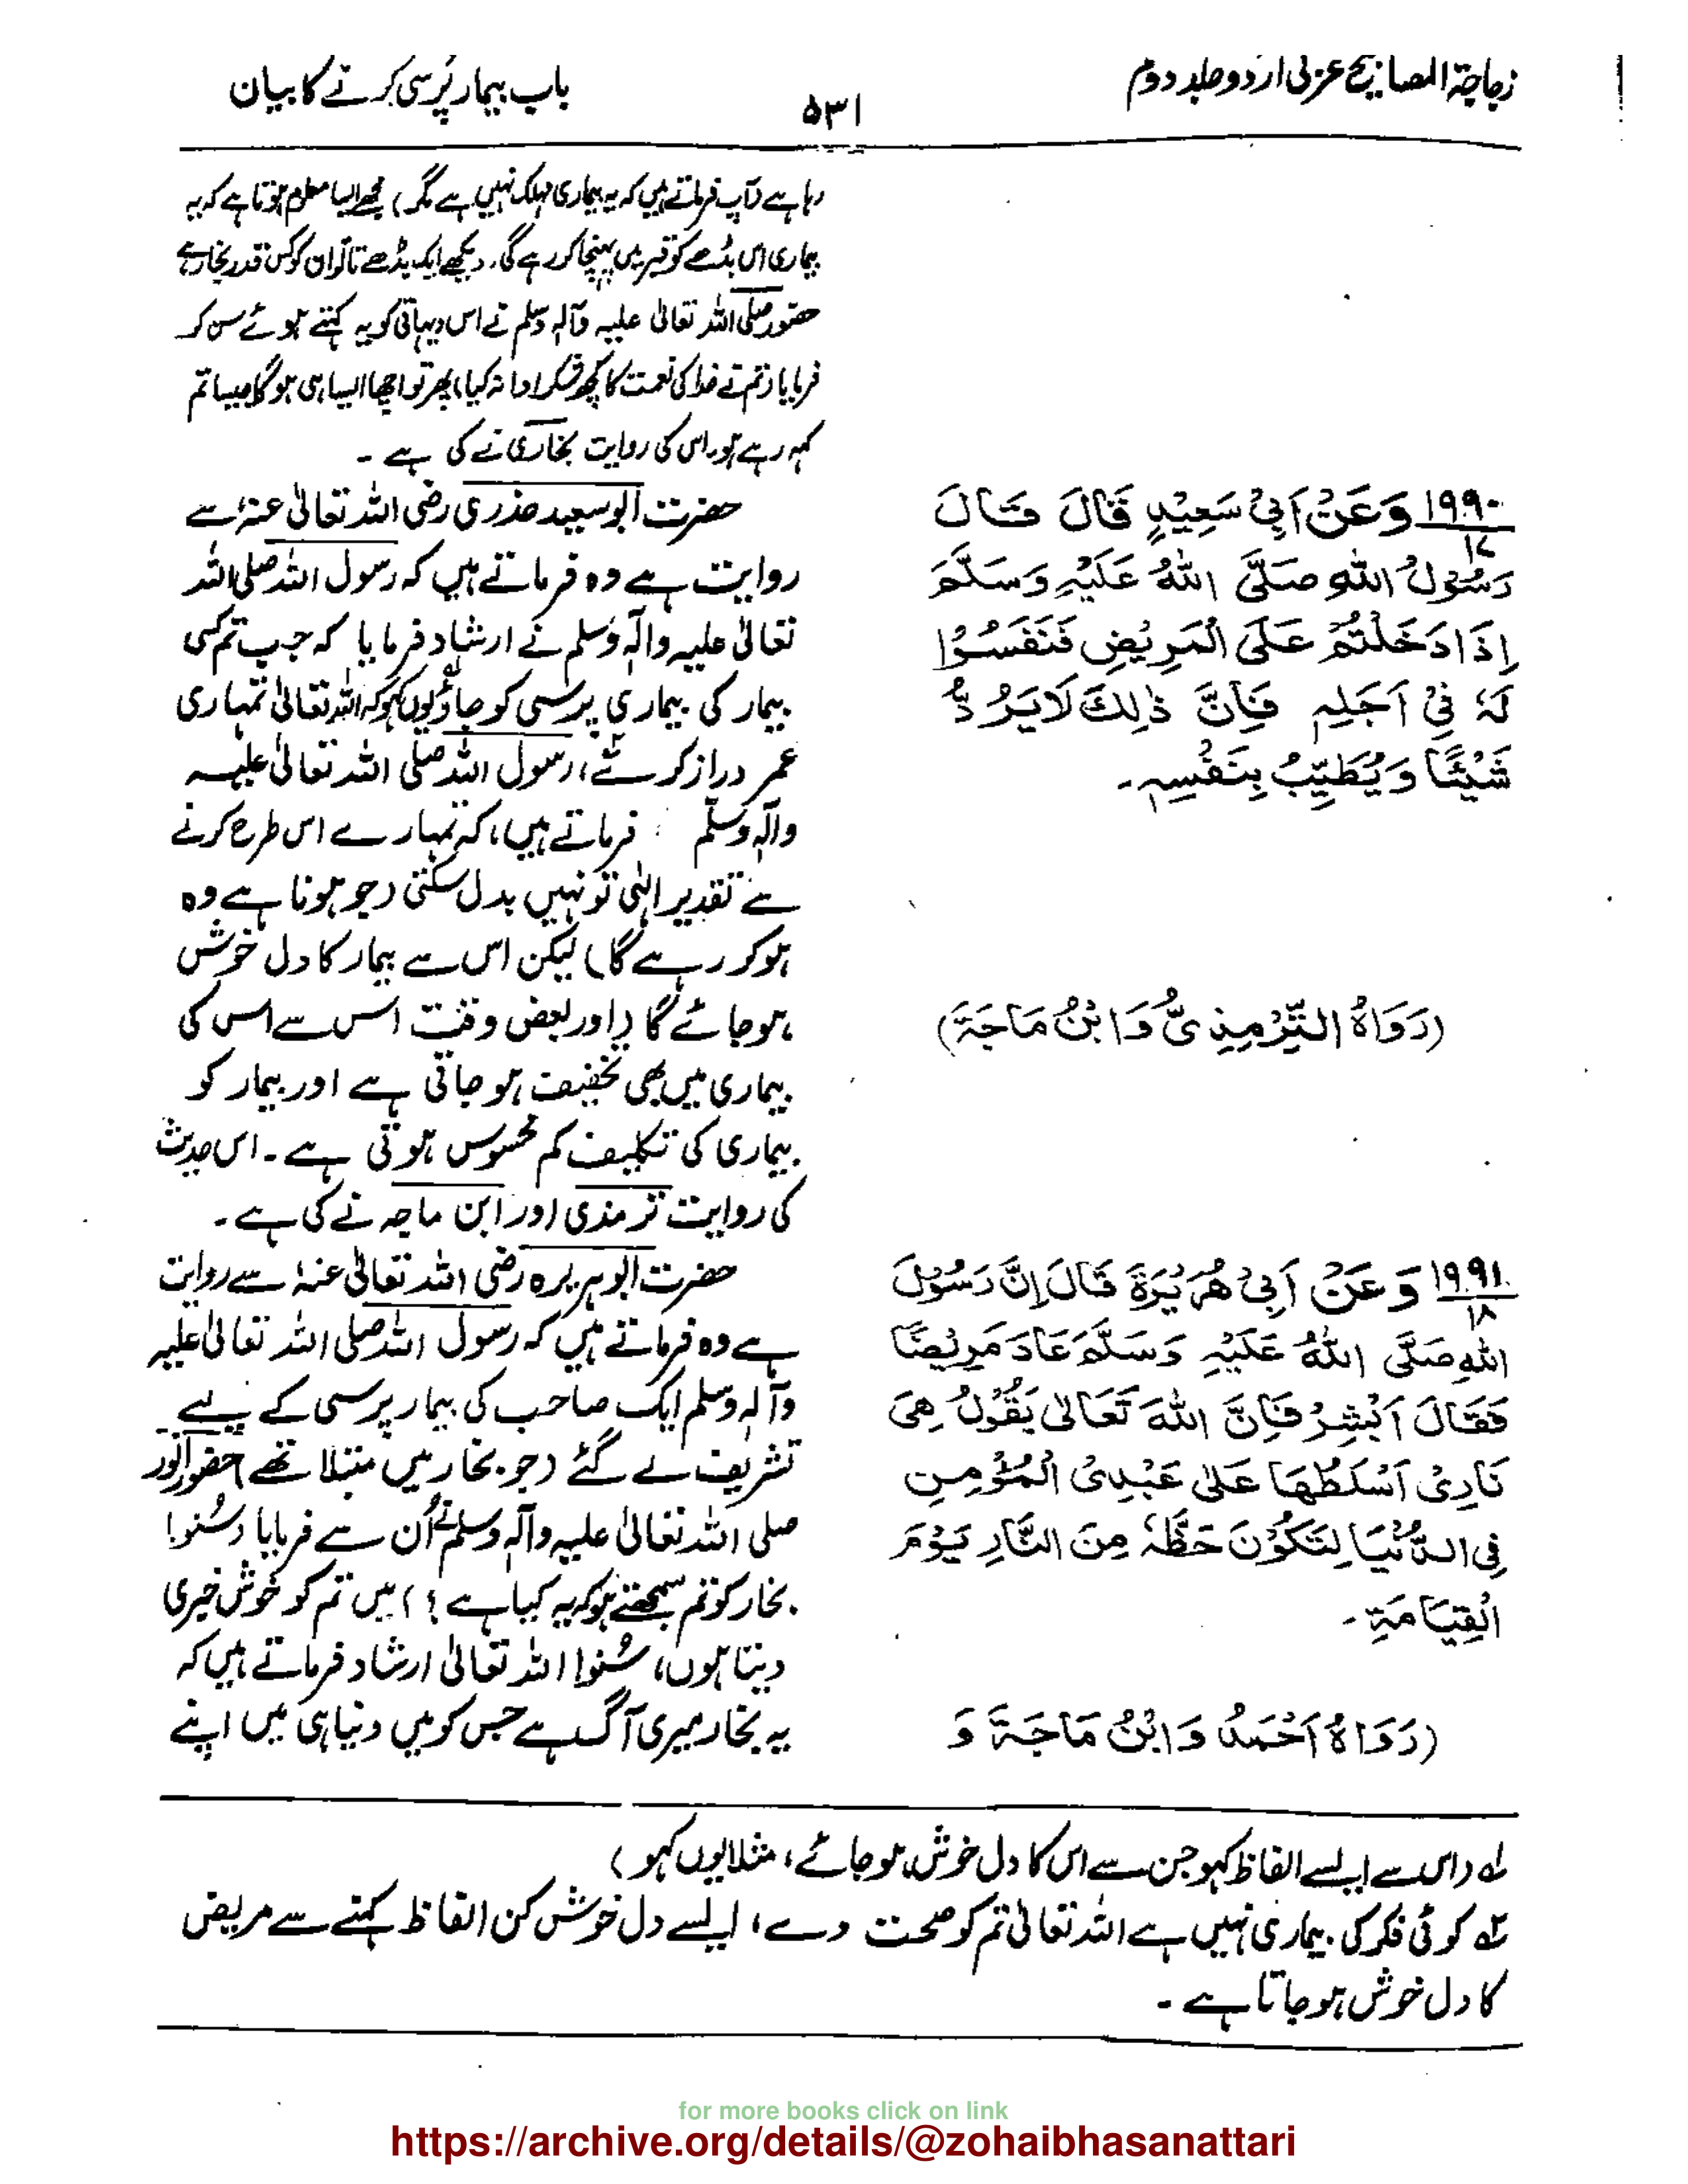 زجاجۃ المصابیح عربی اردو جلد دوم
۵۳۱
باب بیمار پُرسی کرنے کا بیان
رہا ہے (آپ فرماتے ہیں کہ یہ بیماری مہلک نہیں ہے مگر) مجھے ایسا معلوم ہوتا ہے کہ یہ
بیماری اس بڈھے کو قبر میں پہنچا کر رہے گی، دیکھئے ایک بڈھے ناتواں کو کس قدر بخار ہے
حضور صلی اللہ تعالیٰ علیہ وآلہ وسلم نے اس دیہاتی کو یہ کہتے ہوئے سن کر
فرمایا (تم نے خدا کی نعمت کا کچھ شکر ادا نہ کیا) پھر تو اچھا ایسا ہی ہوگا جیسا تم
کہہ رہے ہو، اس کی روایت بخاری نے کی ہے ۔
۱۹۹۰ وَعَنْ اَبِیْ سَعِیْدٍ قَالَ قَالَ
۱۷
رَسُوْلُ اللّٰہِ صَلَّی اللّٰہُ عَلَیْہِ وَسَلَّمَ
اِذَا دَخَلْتُمْ عَلَی الْمَرِیْضِ فَنَفِّسُوْا
لَہٗ فِیْ اَجَلِہٖ فَاِنَّ ذٰلِكَ لَا یَرُدُّ
شَیْئًا وَیُطَیِّبُ بِنَفْسِہٖ ۔
(رَوَاہُ التِّرْمِذِیُّ وَابْنُ مَاجَۃَ)
حضرت ابوسعید خدری رضی اللہ تعالیٰ عنہٗ سے
روایت ہے وہ فرماتے ہیں کہ رسول اللہ صلی اللہ
تعالیٰ علیہ واٰلہٖ وسلم نے ارشاد فرمایا کہ جب تم کسی
بیمار کی بیماری پرسی کو جاؤ یوں کہو کہ اللہ تعالیٰ تمہاری
عمر دراز کرے، رسول اللہ صلی اللہ تعالیٰ علیہ
واٰلہٖ وسلّم فرماتے ہیں، کہ تمہارے اس طرح کرنے
سے تقدیر الٰہی تو نہیں بدل سکتی (جو ہونا ہے وہ
ہوکر رہے گا) لیکن اس سے بیمار کا دل خوش
ہو جائے گا (اور بعض وقت اس سے اس کی
بیماری میں بھی تخفیف ہو جاتی ہے اور بیمار کو
بیماری کی تکلیف کم محسوس ہوتی ہے ۔ اس حدیث
کی روایت ترمذی اور ابن ماجہ نے کی ہے ۔
۱۹۹۱ وَعَنْ اَبِیْ ھُرَیْرَۃَ قَالَ اِنَّ رَسُوْلَ
۱۸
اللّٰہِ صَلَّی اللّٰہُ عَلَیْہِ وَسَلَّمَ عَادَ مَرِیْضًا
فَقَالَ اَبْشِرْ فَاِنَّ اللّٰہَ تَعَالٰی یَقُوْلُ ھِیَ
نَارِیْ اُسَلِّطُھَا عَلٰی عَبْدِی الْمُؤْمِنِ
فِی الدُّنْیَا لِتَکُوْنَ حَظَّہٗ مِنَ النَّارِ یَوْمَ
الْقِیَامَۃِ ۔
(رَوَاہُ اَحْمَدُ وَابْنُ مَاجَۃَ وَ
حضرت ابوہریرہ رضی اللہ تعالیٰ عنہٗ سے روایت
ہے وہ فرماتے ہیں کہ رسول اللہ صلی اللہ تعالیٰ علیہ
وآلہٖ وسلم ایک صاحب کی بیمار پرسی کے لیے
تشریف لے گئے (جو بخار میں مبتلا تھے) حضور انور
صلی اللہ تعالیٰ علیہ وآلہٖ وسلم نے اُن سے فرمایا (سُنو!
بخار کو تم سمجھتے ہو کہ یہ کیا ہے؟) میں تم کو خوش خبری
دیتا ہوں، سُنو! اللہ تعالیٰ ارشاد فرماتے ہیں کہ
یہ بخار میری آگ ہے جس کو میں دنیا ہی میں اپنے
لہ (اس سے ایسے الفاظ کہو جن سے اس کا دل خوش ہو جائے، مثلا یوں کہو)
لہ کوئی فکر کی بیماری نہیں ہے اللہ تعالیٰ تم کو صحت دے، ایسے دل خوش کن الفاظ کہنے سے مریض
کا دل خوش ہو جاتا ہے ۔
for more books click on link
https://archive.org/details/@zohaibhasanattari